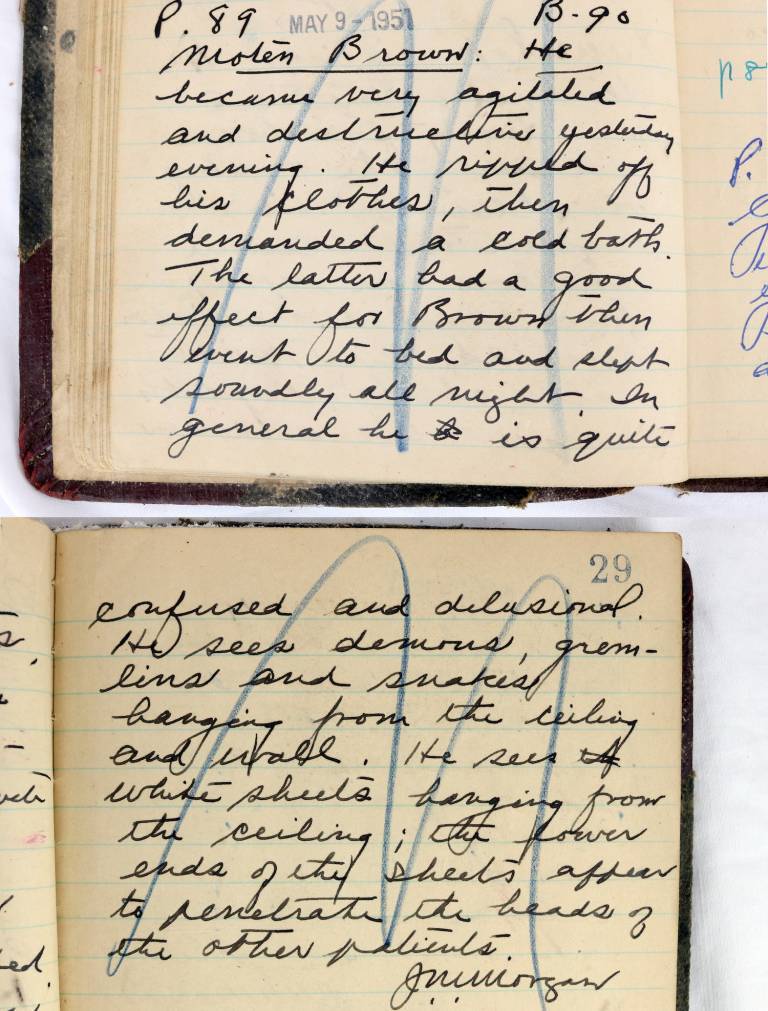 P. 89 MAY 9 - 1951 B-90
Moten Brown: He
became very agitated
and destructive yesterday
evening. He ripped off
his clothes, then
demanded a cold bath.
The latter had a good
effect for Brown then
went to bed and slept
soundly all night. In
general he is quite
p 8
P.
29
confused and delusional.
He sees demons, grem-
lins and snakes
hanging from the ceiling
and wall. He sees
white sheets hanging from
the ceiling; the lower
ends of the sheets appear
to penetrate the heads of
the other patients.
J.M. Morgan